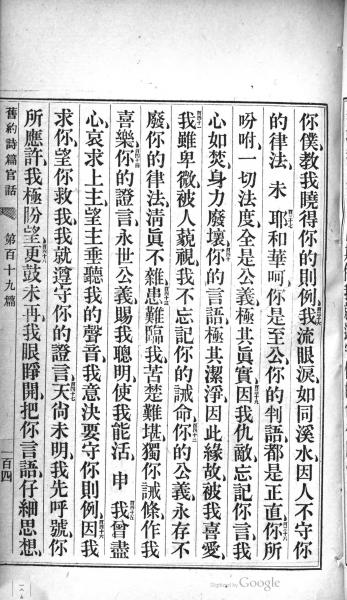 你僕、教我曉得你的則例、百三十六我流眼淚如同溪水、因人不守你
的律法。 未 百三十七耶和華呵、你是至公、你的判語都是正直、百三十八你所
吩咐一切法度、全是公義、極其眞實、百三十九因我仇敵忘記你言、我
心如焚、身力廢壞、百四十你的言語極其潔淨、因此緣故被我喜愛、
百四十一我雖卑微、被人藐視、我不忘記你的誡命、百四十二你的公義永存不
廢、你的律法清眞不雜、百四十三患難臨我、苦楚難堪、獨你誡條作我
喜樂、百四十四你的證言永世公義、賜我聰明、使我能活。 申 百四十五我曾盡
心哀求上主、望主垂聽我的聲音、我意決要守你則例、百四十六因我
求你、望你救我、我就遵守你的證言、百四十七天尙未明、我先呼號、你
所應許、我極盼望、百四十八更鼓未再、我眼睜開、把你言語仔細思想、
舊約詩篇官話 第百十九篇 一百四
Digitized by Google